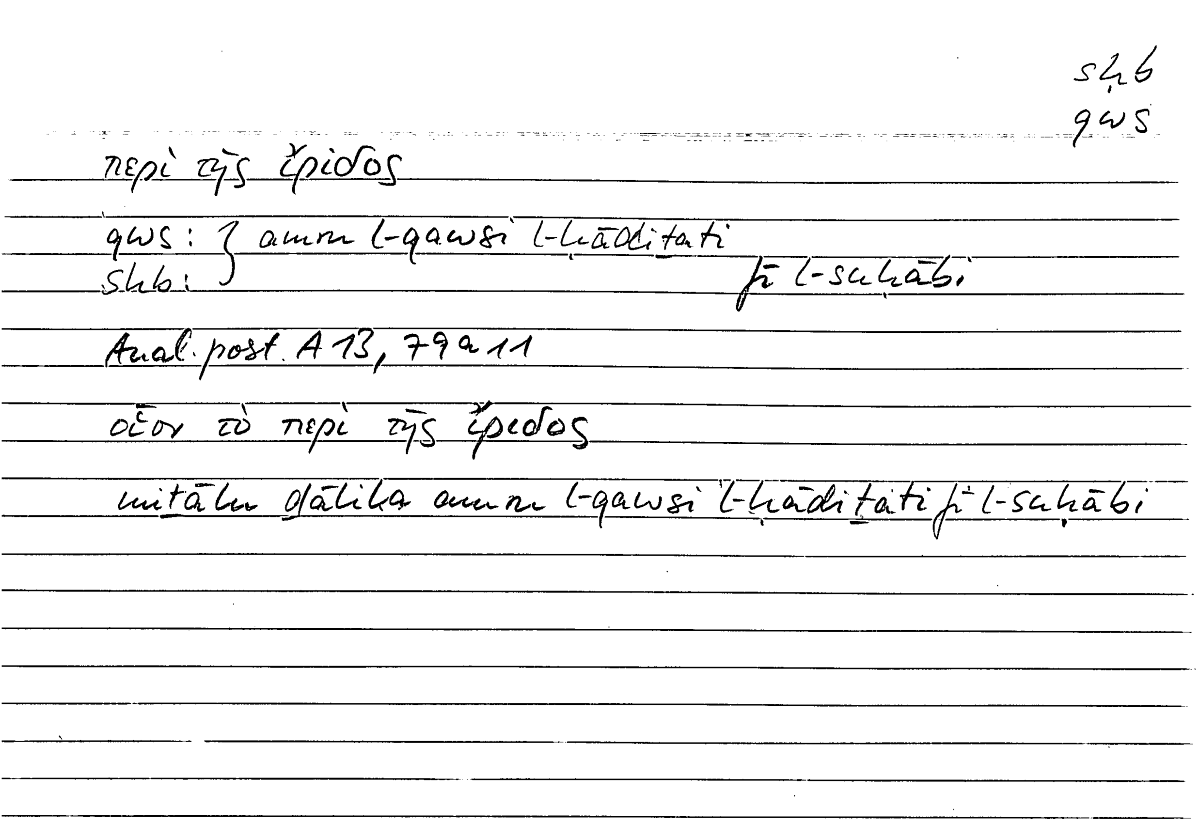 sḥb
qws
περὶ τῆς ἴριδος
qws: } amru l-qawsi l-ḥādiṯati
sḥb: fī l-suḥābi
Anal. post. A 13, 79 a 11
οἷον τὸ περὶ τῆς ἴριδος
miṯālu ḏālika amru l-qawsi l-ḥādiṯati fī l-suḥābi